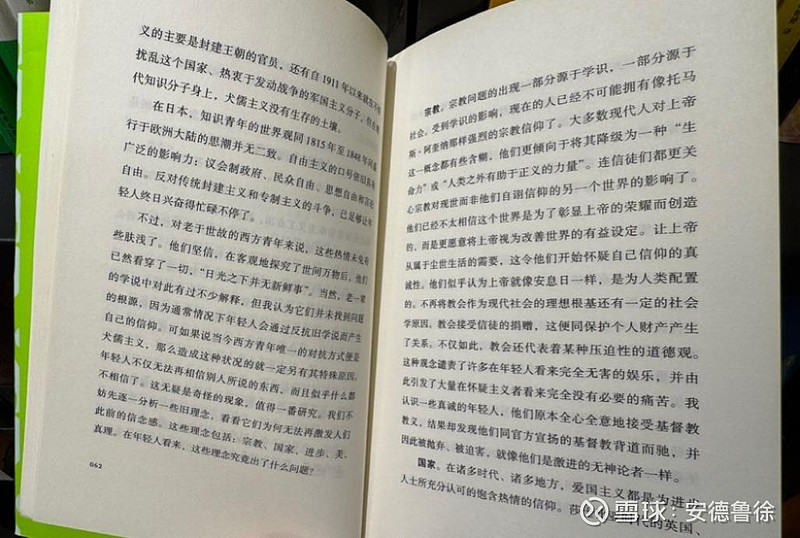 义的主要是封建王朝的官员，还有自1911年以来就在不停
扰乱这个国家、热衷于发动战争的军国主义分子，但在
代知识分子身上，犬儒主义没有生存的土壤。
在日本，知识青年的世界观同1815年至1848年间
行于欧洲大陆的思潮并无二致。自由主义的口号依旧具有
广泛的影响力：议会制政府、民众自由、思想自由和言论
自由。反对传统封建主义和专制主义的斗争，已足够让年
轻人终日兴奋得忙碌不停了。
不过，对老于世故的西方青年来说，这些热情未免有
些肤浅了。他们坚信，在客观地探究了世间万物后，他们
已然看穿了一切，“日光之下并无新鲜事”。当然，老一辈
的学说中对此有过不少解释，但我认为它们并未找到问题
的根源，因为通常情况下年轻人会通过反抗旧学说而产生
自己的信仰。可如果说当今西方青年唯一的对抗方式便是
犬儒主义，那么造成这种状况的就一定另有其特殊原因。
年轻人不仅无法再相信别人所说的东西，而且似乎什么都
不相信了。这无疑是奇怪的现象，值得一番研究。我们不
妨先逐一分析一些旧理念，看看它们为何无法再激发人们
此前的信念感。这些理念包括：宗教、国家、进步、美、
真理。在年轻人看来，这些理念究竟出了什么问题？
062
宗教。宗教问题的出现一部分源于学识，一部分源于
社会。受到学识的影响，现在的人已经不可能拥有像托马
斯·阿奎纳那样强烈的宗教信仰了。大多数现代人对上帝
这一概念都有些含糊，他们更倾向于将其降级为一种“生
命力”或“人类之外有助于正义的力量”。连信徒们都更关
心宗教对现世而非他们自诩信仰的另一个世界的影响了。
他们已经不太相信这个世界是为了彰显上帝的荣耀而创造
的，而是更愿意将上帝视为改善世界的有益设定。让上帝
从属于尘世生活的需要，这令他们开始怀疑自己信仰的真
诚性。他们似乎认为上帝就像安息日一样，是为人类配置
的。不再将教会作为现代社会的理想根基还有一定的社会
学原因。教会接受信徒的捐赠，这便同保护个人财产产生
了关系。不仅如此，教会还代表着某种压迫性的道德观。
这种观念谴责了许多在年轻人看来完全无害的娱乐，并由
此引发了大量在怀疑主义者看来完全没有必要的痛苦。我
认识一些真诚的年轻人，他们原本全心全意地接受基督教
教义，结果却发现他们同官方宣扬的基督教背道而驰，并
因此被抛弃、被迫害，就像他们是激进的无神论者一样。
国家。在诸多时代、诸多地方，爱国主义都是为进步
人士所充分认可的饱含热情的信仰。莎 时代的英国、
雪球：安德鲁徐